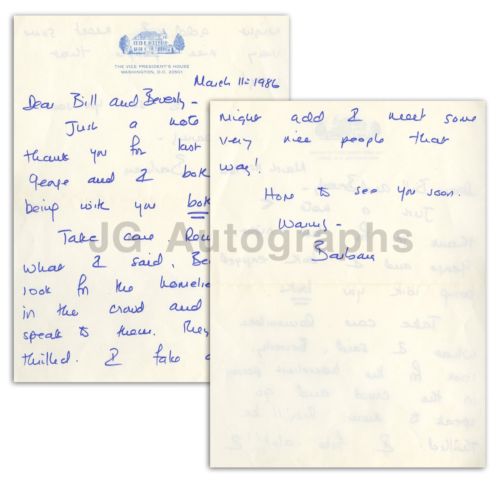 THE VICE PRESIDENT'S HOUSE
WASHINGTON, D.C. 20501
March 11- 1986
Dear Bill and Beverly -
Just a note
thank you for last
George and I both
being with you both
Take care
what I said. Be
look for the homelie
in the crowd and
speak to them. They
thrilled. I take a
might add I meet some
very nice people that
way!
Hope to see you soon.
Warmly -
Barbara
JG Autographs